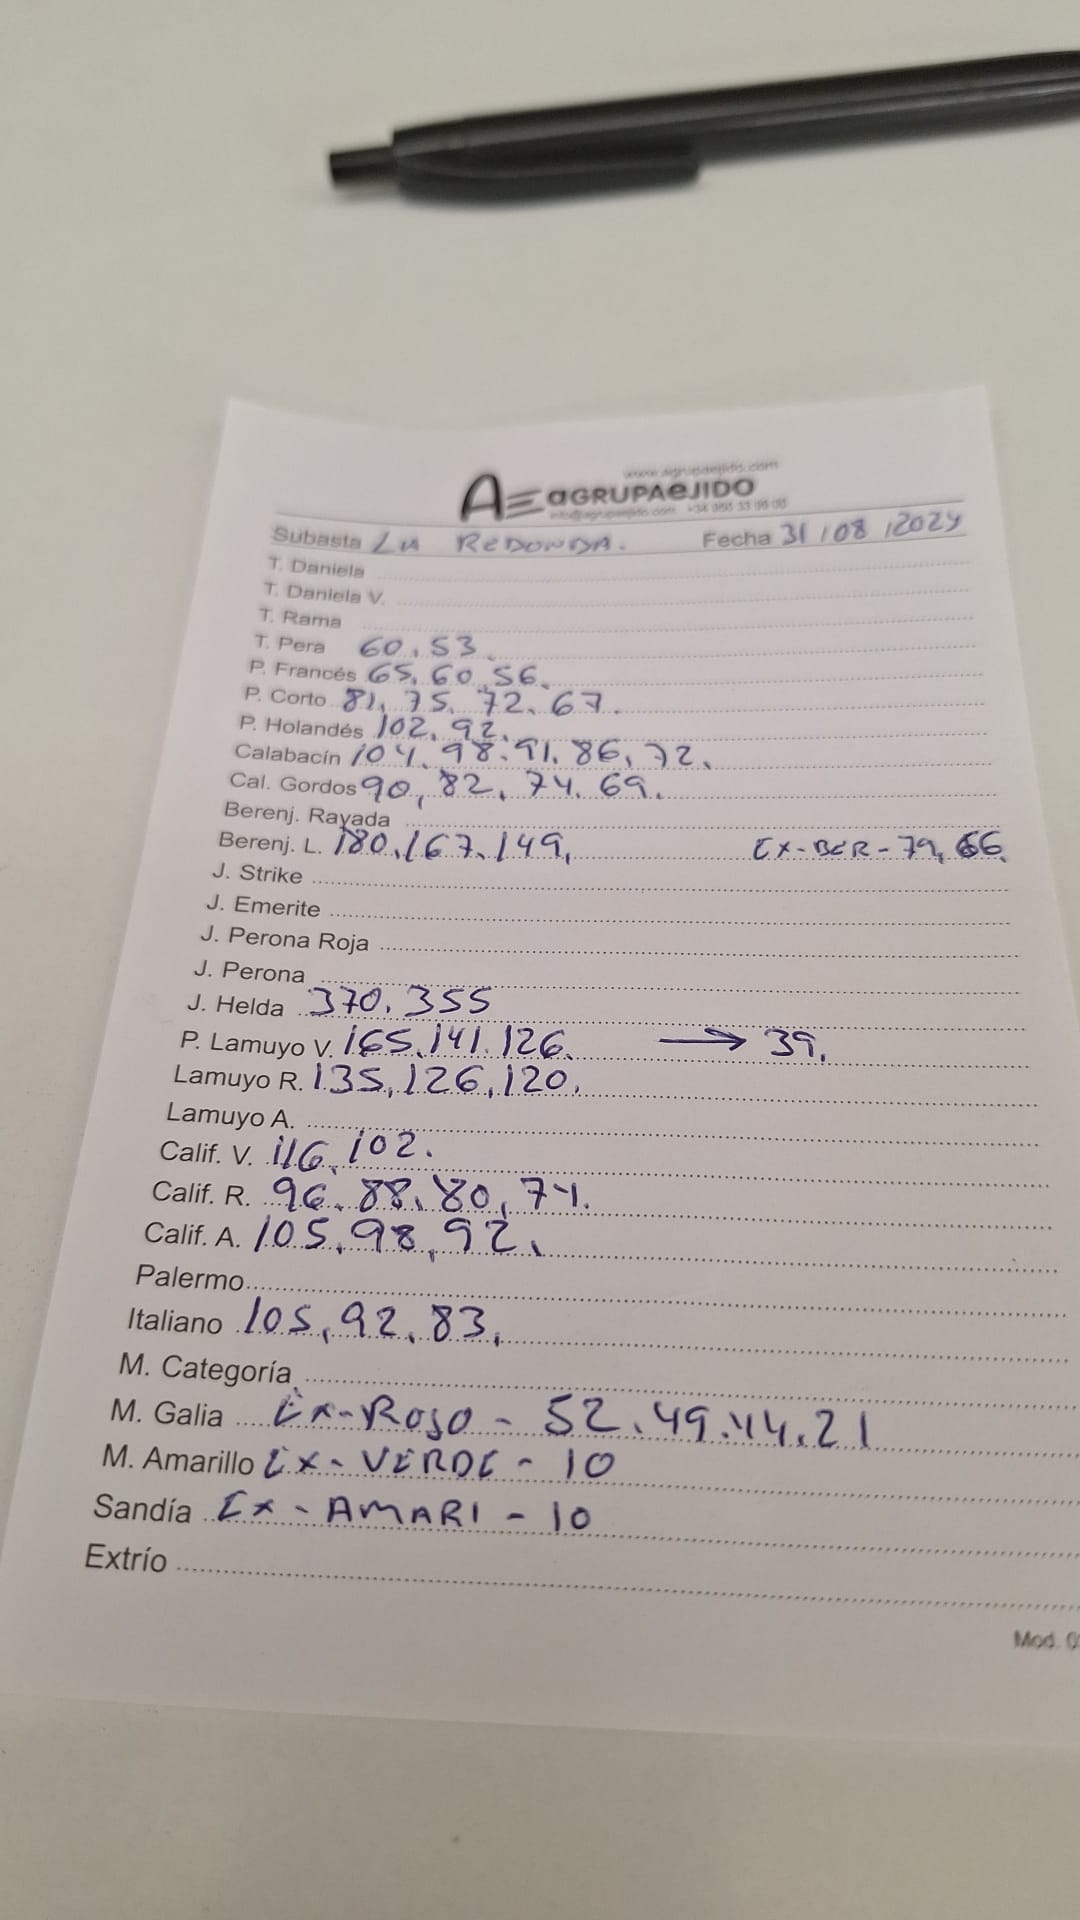 www.agrupaejido.com
AE aGRUPAeJIDO
info@agrupaejido.com
Subasta LA REDONDA. Fecha 31/08/2024
T. Daniela
T. Daniela V.
T. Rama
T. Pera 60, 53
P. Francés 65, 60, 56.
P. Corto 81, 75, 72, 67.
P. Holandés 102, 92.
Calabacín 104, 98, 91, 86, 72.
Cal. Gordos 90, 82, 74, 69.
Berenj. Rayada
Berenj. L. 180, 167, 149, EX-BER-79, 66.
J. Strike
J. Emerite
J. Perona Roja
J. Perona
J. Helda 370, 355
P. Lamuyo V. 165, 141, 126. → 39.
Lamuyo R. 135, 126, 120.
Lamuyo A.
Calif. V. 116, 102.
Calif. R. 96, 88, 80, 74.
Calif. A. 105, 98, 92,
Palermo
Italiano 105, 92, 83,
M. Categoría
M. Galia EX-ROJO - 52, 49, 44, 21
M. Amarillo EX-VERDE - 10
Sandía EX-AMARI - 10
Extrío
Mod.